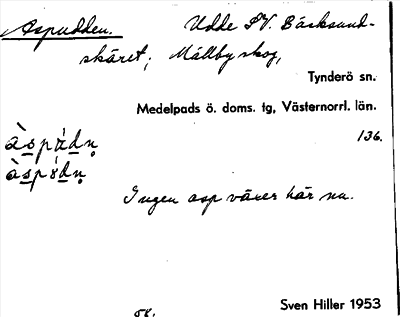 Aspudden. Udde SV. Bäcksund-
skäret; Mällby skog,
Tynderö sn.
Medelpads ö. doms. tg, Västernorrl. län.
136.
àspúdn̥
àspúdn̥
Ingen asp växer här nu.
Sven Hiller 1953